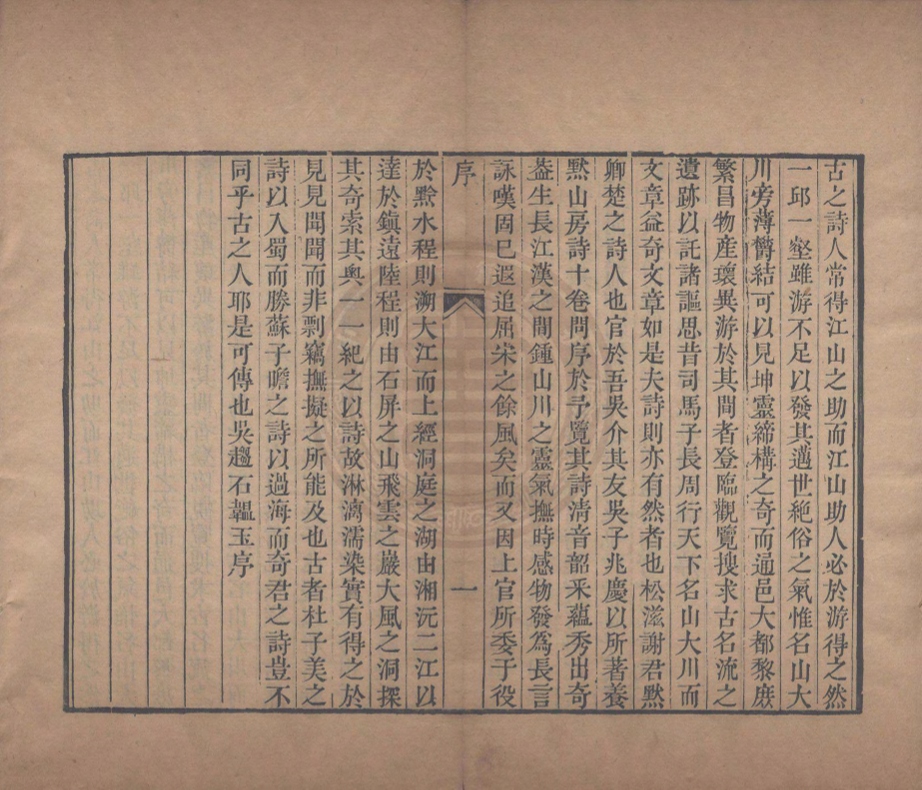 古之詩人常得江山之助而江山助人必於游得之然
一邱一壑雖游不足以發其邁世絶俗之氣惟名山大
川旁薄鬱結可以見坤靈締構之奇而通邑大都黎庶
繁昌物產瓌異游於其間者登臨觀覽搜求古名流之
遺跡以託諸謳思昔司馬子長周行天下名山大川而
文章益奇文章如是夫詩則亦有然者也松滋謝君默
卿楚之詩人也官於吾吳介其友吳子兆慶以所著養
默山房詩十卷問序於予覽其詩清音韶采蘊秀出奇
葢生長江漢之間鍾山川之靈氣撫時感物發爲長言
詠嘆固已遐追屈宋之餘風矣而又因上官所委于役
序
一
於黔水程則溯大江而上經洞庭之湖由湘沅二江以
達於鎮遠陸程則由石屏之山飛雲之巖大風之洞探
其奇索其奥一一紀之以詩故淋漓濡染實有得之於
見見聞聞而非剽竊撫擬之所能及也古者杜子美之
詩以入蜀而勝蘇子瞻之詩以過海而奇君之詩豈不
同乎古之人耶是可傳也吳趨石韞玉序